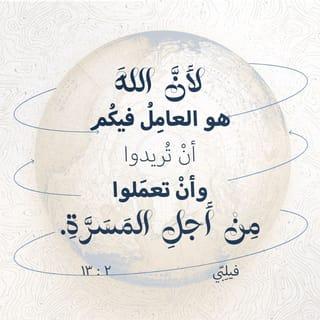 لأَنَّ اللهَ
هو العامِلُ فيكُم
أنْ تُريدوا
وأنْ تعمَلوا
مِنْ أَجلِ المَسَرَّةِ.
فيلِبّي ٢ : ١٣